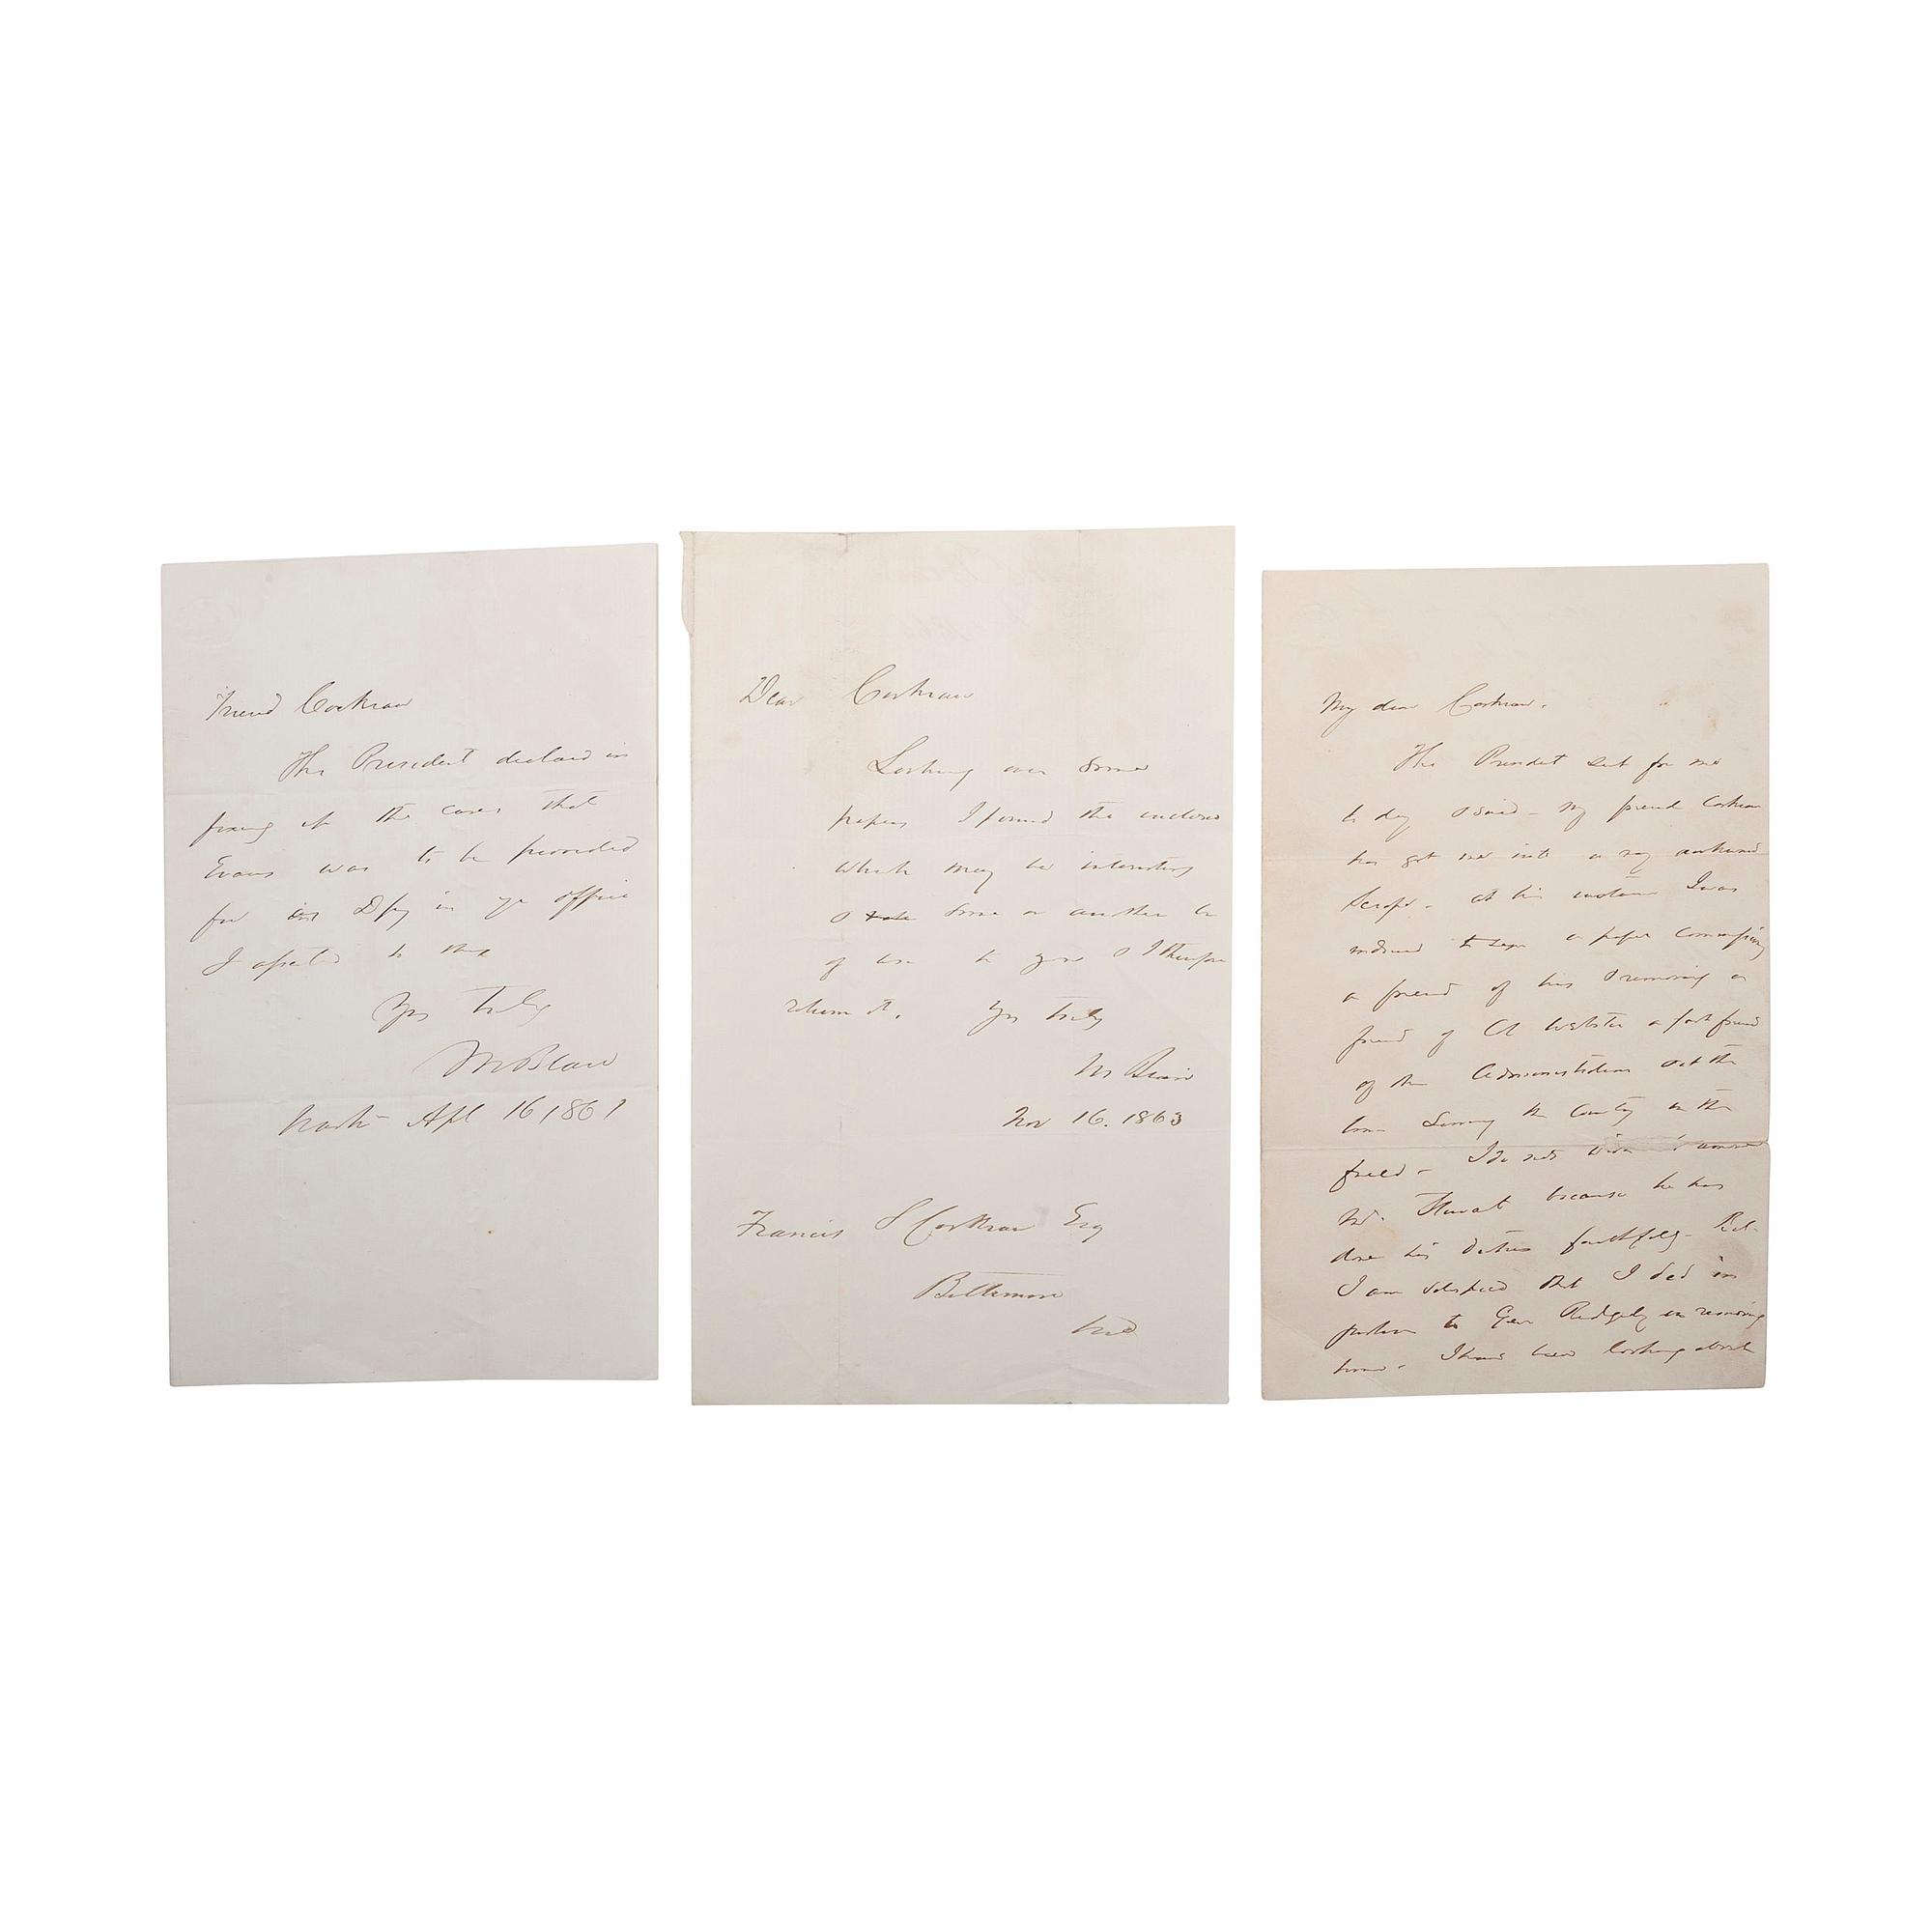 Friend Corkran
The President declared in
fixing up the cases that
Evans was to be provided
for as Dpy in yr office
I assented to this
Yrs truly
M Blair
Wash Apl 16 1861
Dear Corkran
Looking over some
papers I found the enclosed
which may be interesting
& some or another be
of use to you & I therefore
return it. Yrs truly
M Blair
Nov 16. 1863
Francis S Corkran Esq
Baltimore
Md
My dear Corkran.
The President sent for me
to day & said - My friend Corkran
has got me into a very awkward
scrape - at his instance I was
induced to sign a paper commissioning
a friend of his & removing a
friend of Col Webster a fast friend
of the Administration & at the
time serving the Country in the
field - I do not wish to remove
Mr. Stewart because he has
done his duties faithfully - But
I am satisfied that I did in
justice to Gen Ridgely in removing
him - I have been looking about